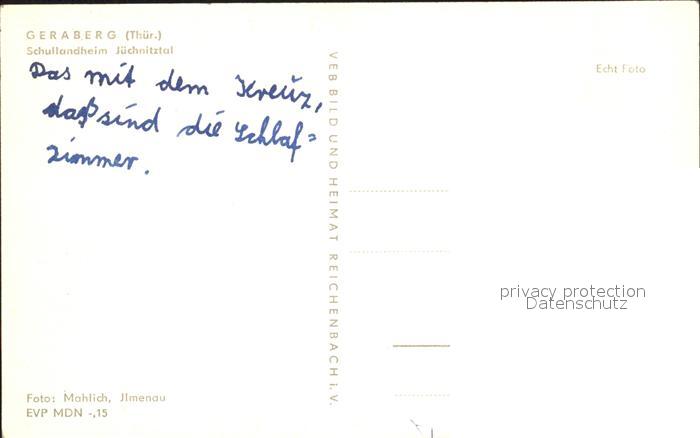 GERABERG (Thür.)
Schullandheim Jüchnitztal
Das mit dem Kreuz,
daß sind die Schlaf=
zimmer.
VEB BILD UND HEIMAT REICHENBACH i. V.
Echt Foto
privacy protection
Datenschutz
Foto: Mahlich, Jlmenau
EVP MDN -,15